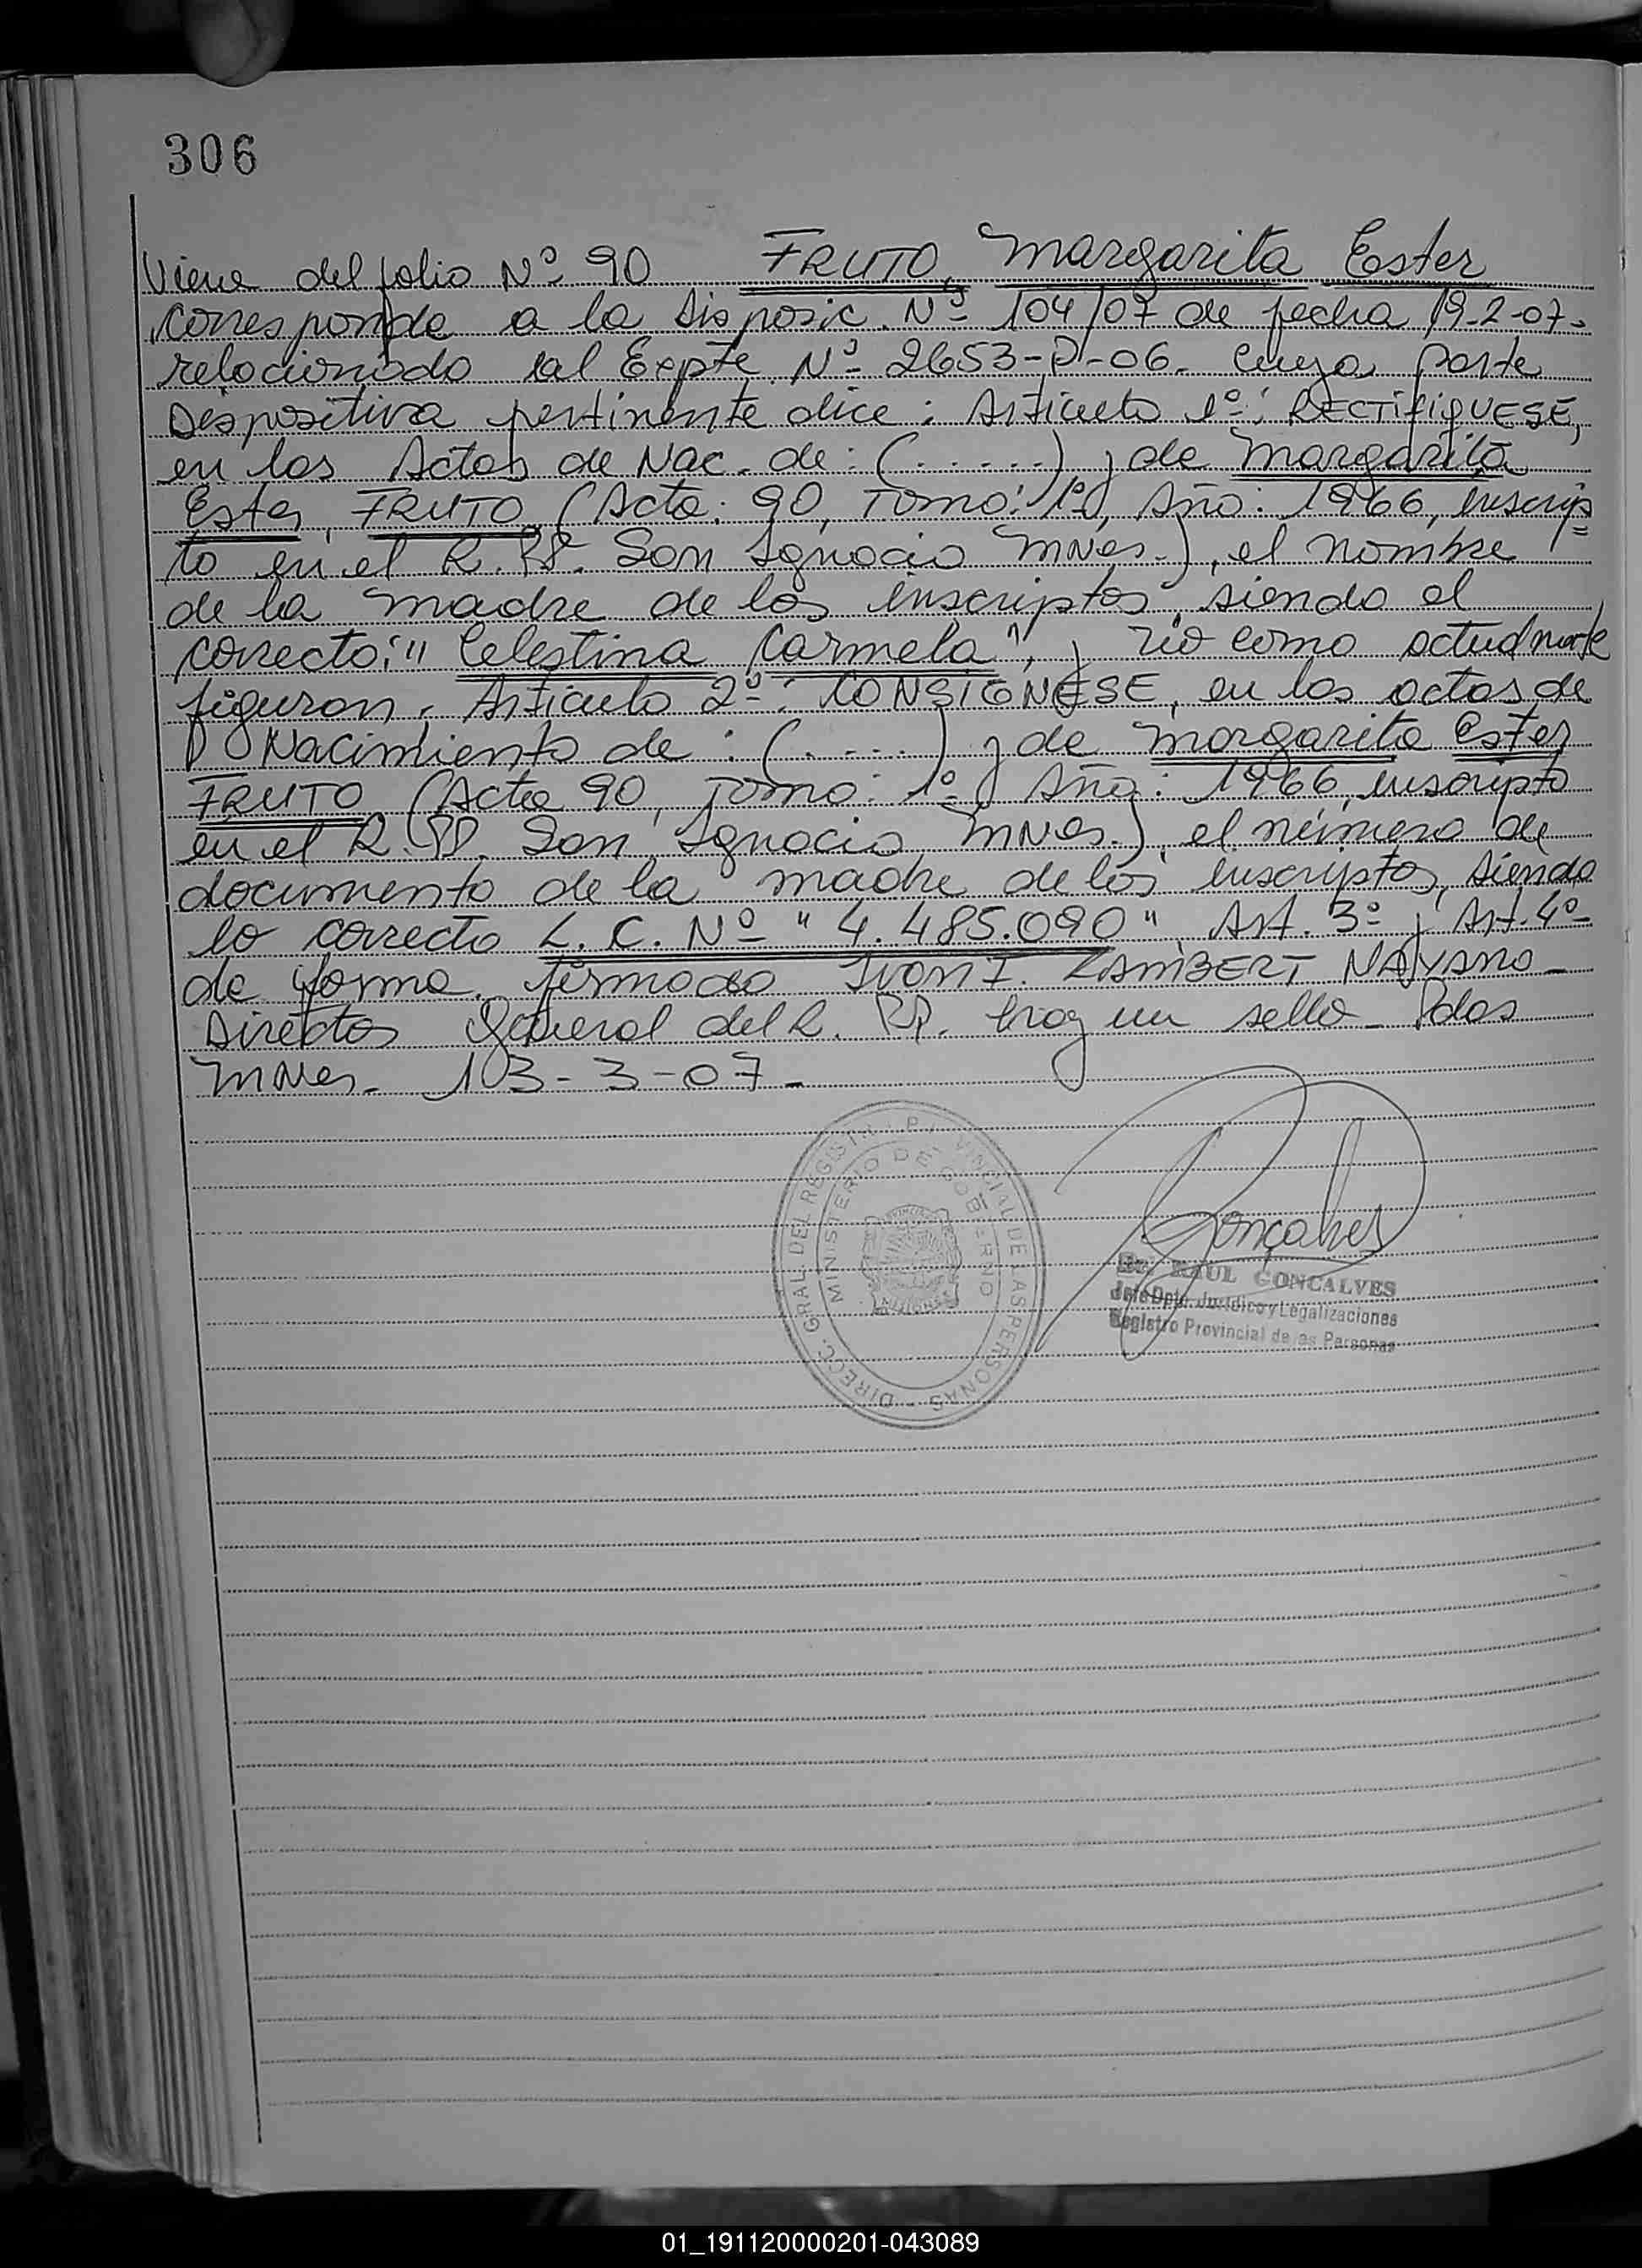 306
Viene del folio Nº 90 FRUTO, Margarita Ester
corresponde a la Disposic. Nº 104/07 de fecha 19-2-07-
relacionado al Expte Nº 2653-P-06- cuya parte
Dispositiva pertinente dice: Articulo 1º: RECTIFIQUESE,
en las Actas de Nac. de: (......) y de Margarita
Ester, FRUTO (Acta: 90, Tomo: 1º, Año: 1966, inscrip=
to en el R.PP. San Ignacio Mnes.), el nombre
de la madre de los inscriptos, siendo el
correcto: "Celestina Carmela", y no como actualmente
figuran. Articulo 2º: CONSIGNESE, en las actas de
Nacimiento de: (.....) y de Margarita Ester
FRUTO (Acta 90, Tomo: 1º, Año: 1966, inscripto
en el R.PP. San Ignacio Mnes.), el número de
documento de la madre de los inscriptos, siendo
lo correcto L.C. Nº "4.485.090", Art. 3º y Art. 4º
de forma. firmado IVON I. LAMBERT NAVARRO-
Director General del R. PP. hay un sello- Pdas
Mnes- 13-3-07-
DIRECC. GRAL. DEL REGISTRO PROVINCIAL DE LAS PERSONAS
MINISTERIO DE GOBIERNO
MISIONES
Gonçalves
Dr. RAUL GONCALVES
Jefe Dpto. Jurídico y Legalizaciones
Registro Provincial de las Personas
01_191120000201-043089